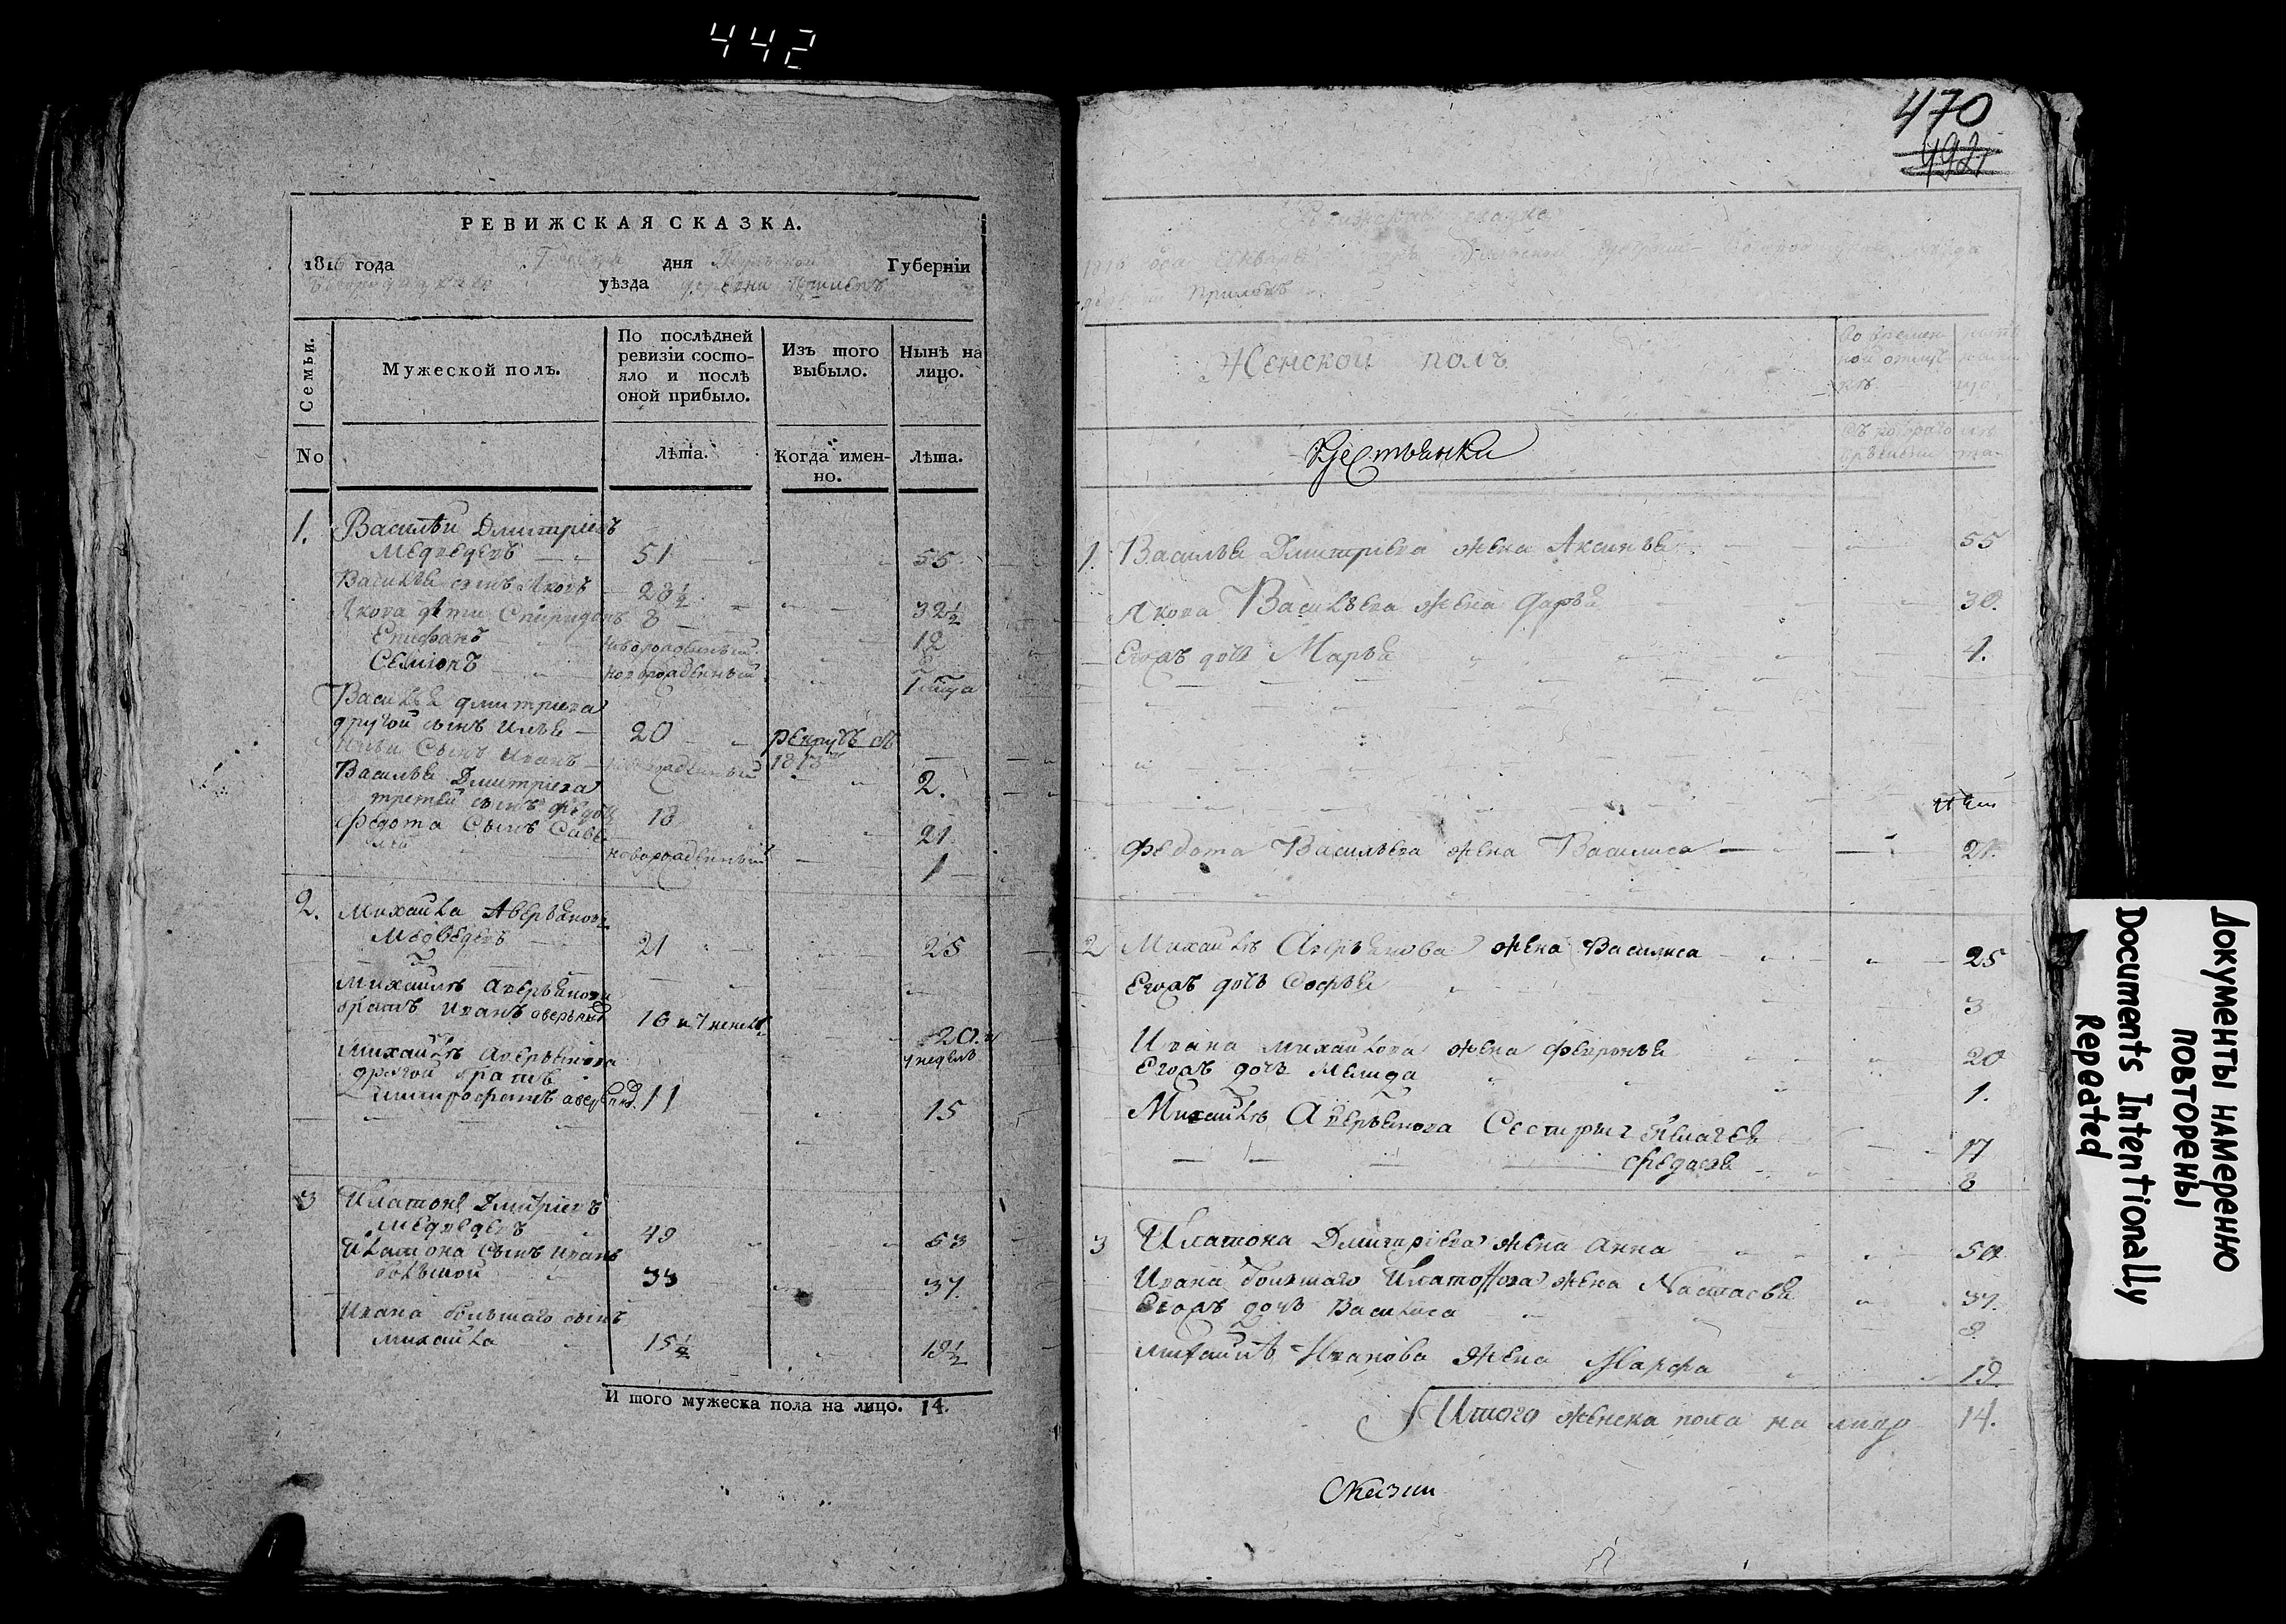 442
РЕВИЖСКАЯ СКАЗКА.
1816 года Генваря дня Губерніи
уѣзда деревни
Семьи.
Мужеской полъ.
По послѣдней ревизіи состояло и послѣ оной прибыло.
Изъ того выбыло.
Нынѣ на лицо.
No
лѣта.
Когда именно.
Лѣта.
1. Василѣи Дмитріевъ
Медведевъ 51 55
Василья сынъ Яковъ 28½ 32½
Якова дѣти Спиридонъ 8 12
Епифанъ новорожденный 8
Семіонъ новорожденный 1 года
Василья дмитріева
другой сынъ Илья 20 рекрутъ въ
Ильи Сынъ Иванъ новорожденный 1813 2.
Василья Дмитріева
третей сынъ Федотъ 18 21
Федота Сынъ Саве
лей новорожденный 1
2. Михаила Аверьяновъ
Медведевъ 21 25
Михаилъ аверьянова
братъ Иванъ 16 и 7 недель 20 и
Михаилъ аверьянова 7 недель
другой братъ
Митрофанъ 11 15
3 Платонъ Дмитріевъ
Медведевъ 49 53
Платона сынъ Иванъ
большой 33 37.
Ивана большаго сынъ
михаила 15½ 19½
И того мужеска пола на лицо. 14.
470
492
Ревижская сказка
1816 года Генваря
деревни
Женской полъ
Во временной отлучкѣ
Съ котораго времяни
Крестьянки
1. Василья Дмитріева жена Аксинья 55
Якова Васильева жена дарья 30.
Егожъ дочь Марья 4.
лѣта
Федота Васильева жена Василиса 21.
2 Михаилъ Аверьянова жена Василиса 25
Егожъ дочь Софья 3
Ивана михаилова жена Февронья 20
Егожъ дочь 1.
Михаилъ Аверьянова Сестры 17
8
3 Платона Дмитріева жена Анна 50
Ивана большаго Платонова жена Настасья 37.
Егожъ дочь Василиса 9.
михаилъ Иванова жена Марфа 19.
Итого женска пола на лицо 14.
Сказки
Документы намеренно
повторены
Documents Intentionally
Repeated